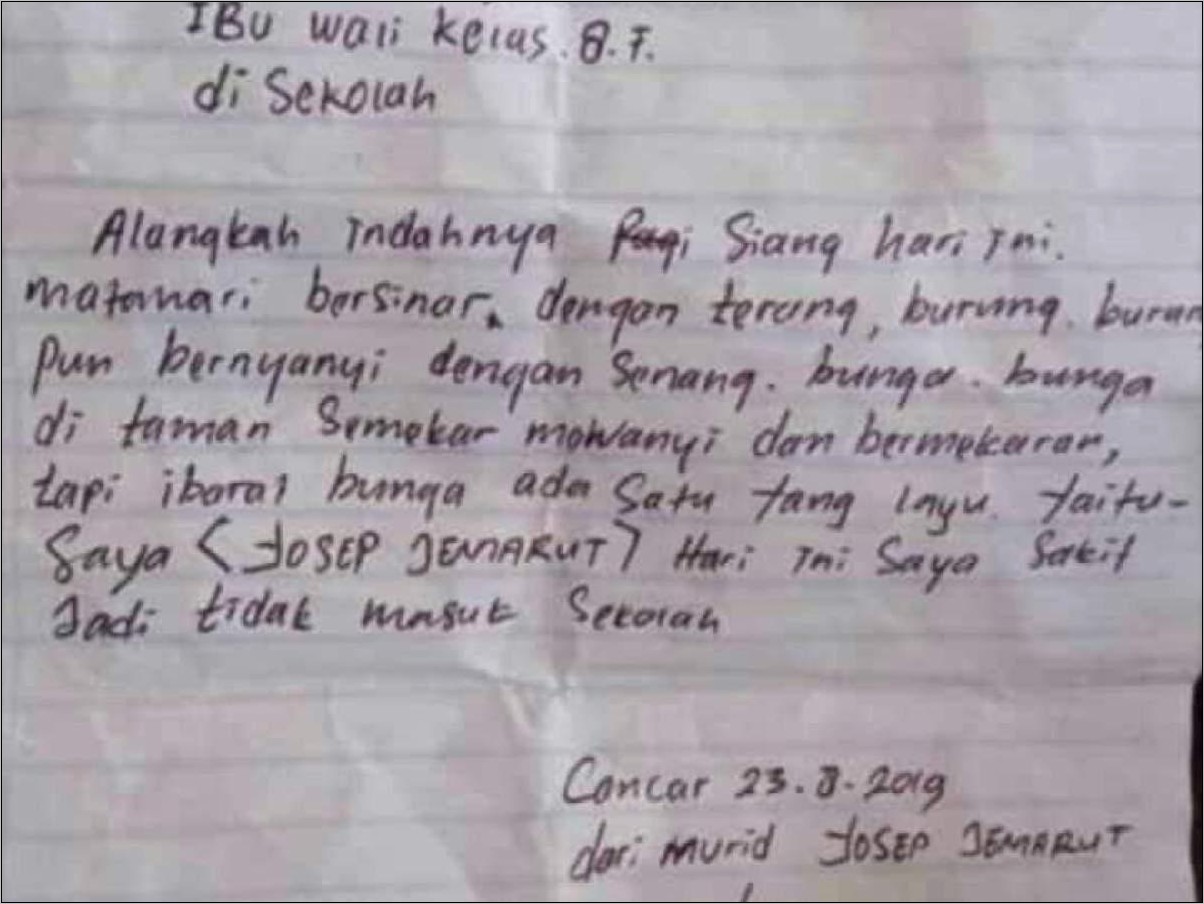 IBU wali kelas. 8.F.
di Sekolah
Alangkah indahnya Pagi Siang hari ini.
matahari bersinar. dengan terang, burung. buran
Pun bernyanyi dengan Senang. bunga. bunga
di taman Semekar mowanyi dan bermekaran,
tapi ibarat bunga ada Satu yang layu. Yaitu-
Saya <YOSEP JEMARUT> Hari ini Saya Sakit
Jadi tidak masuk Sekolah
Concar 23.8.2019
dari murid YOSEP JEMARUT